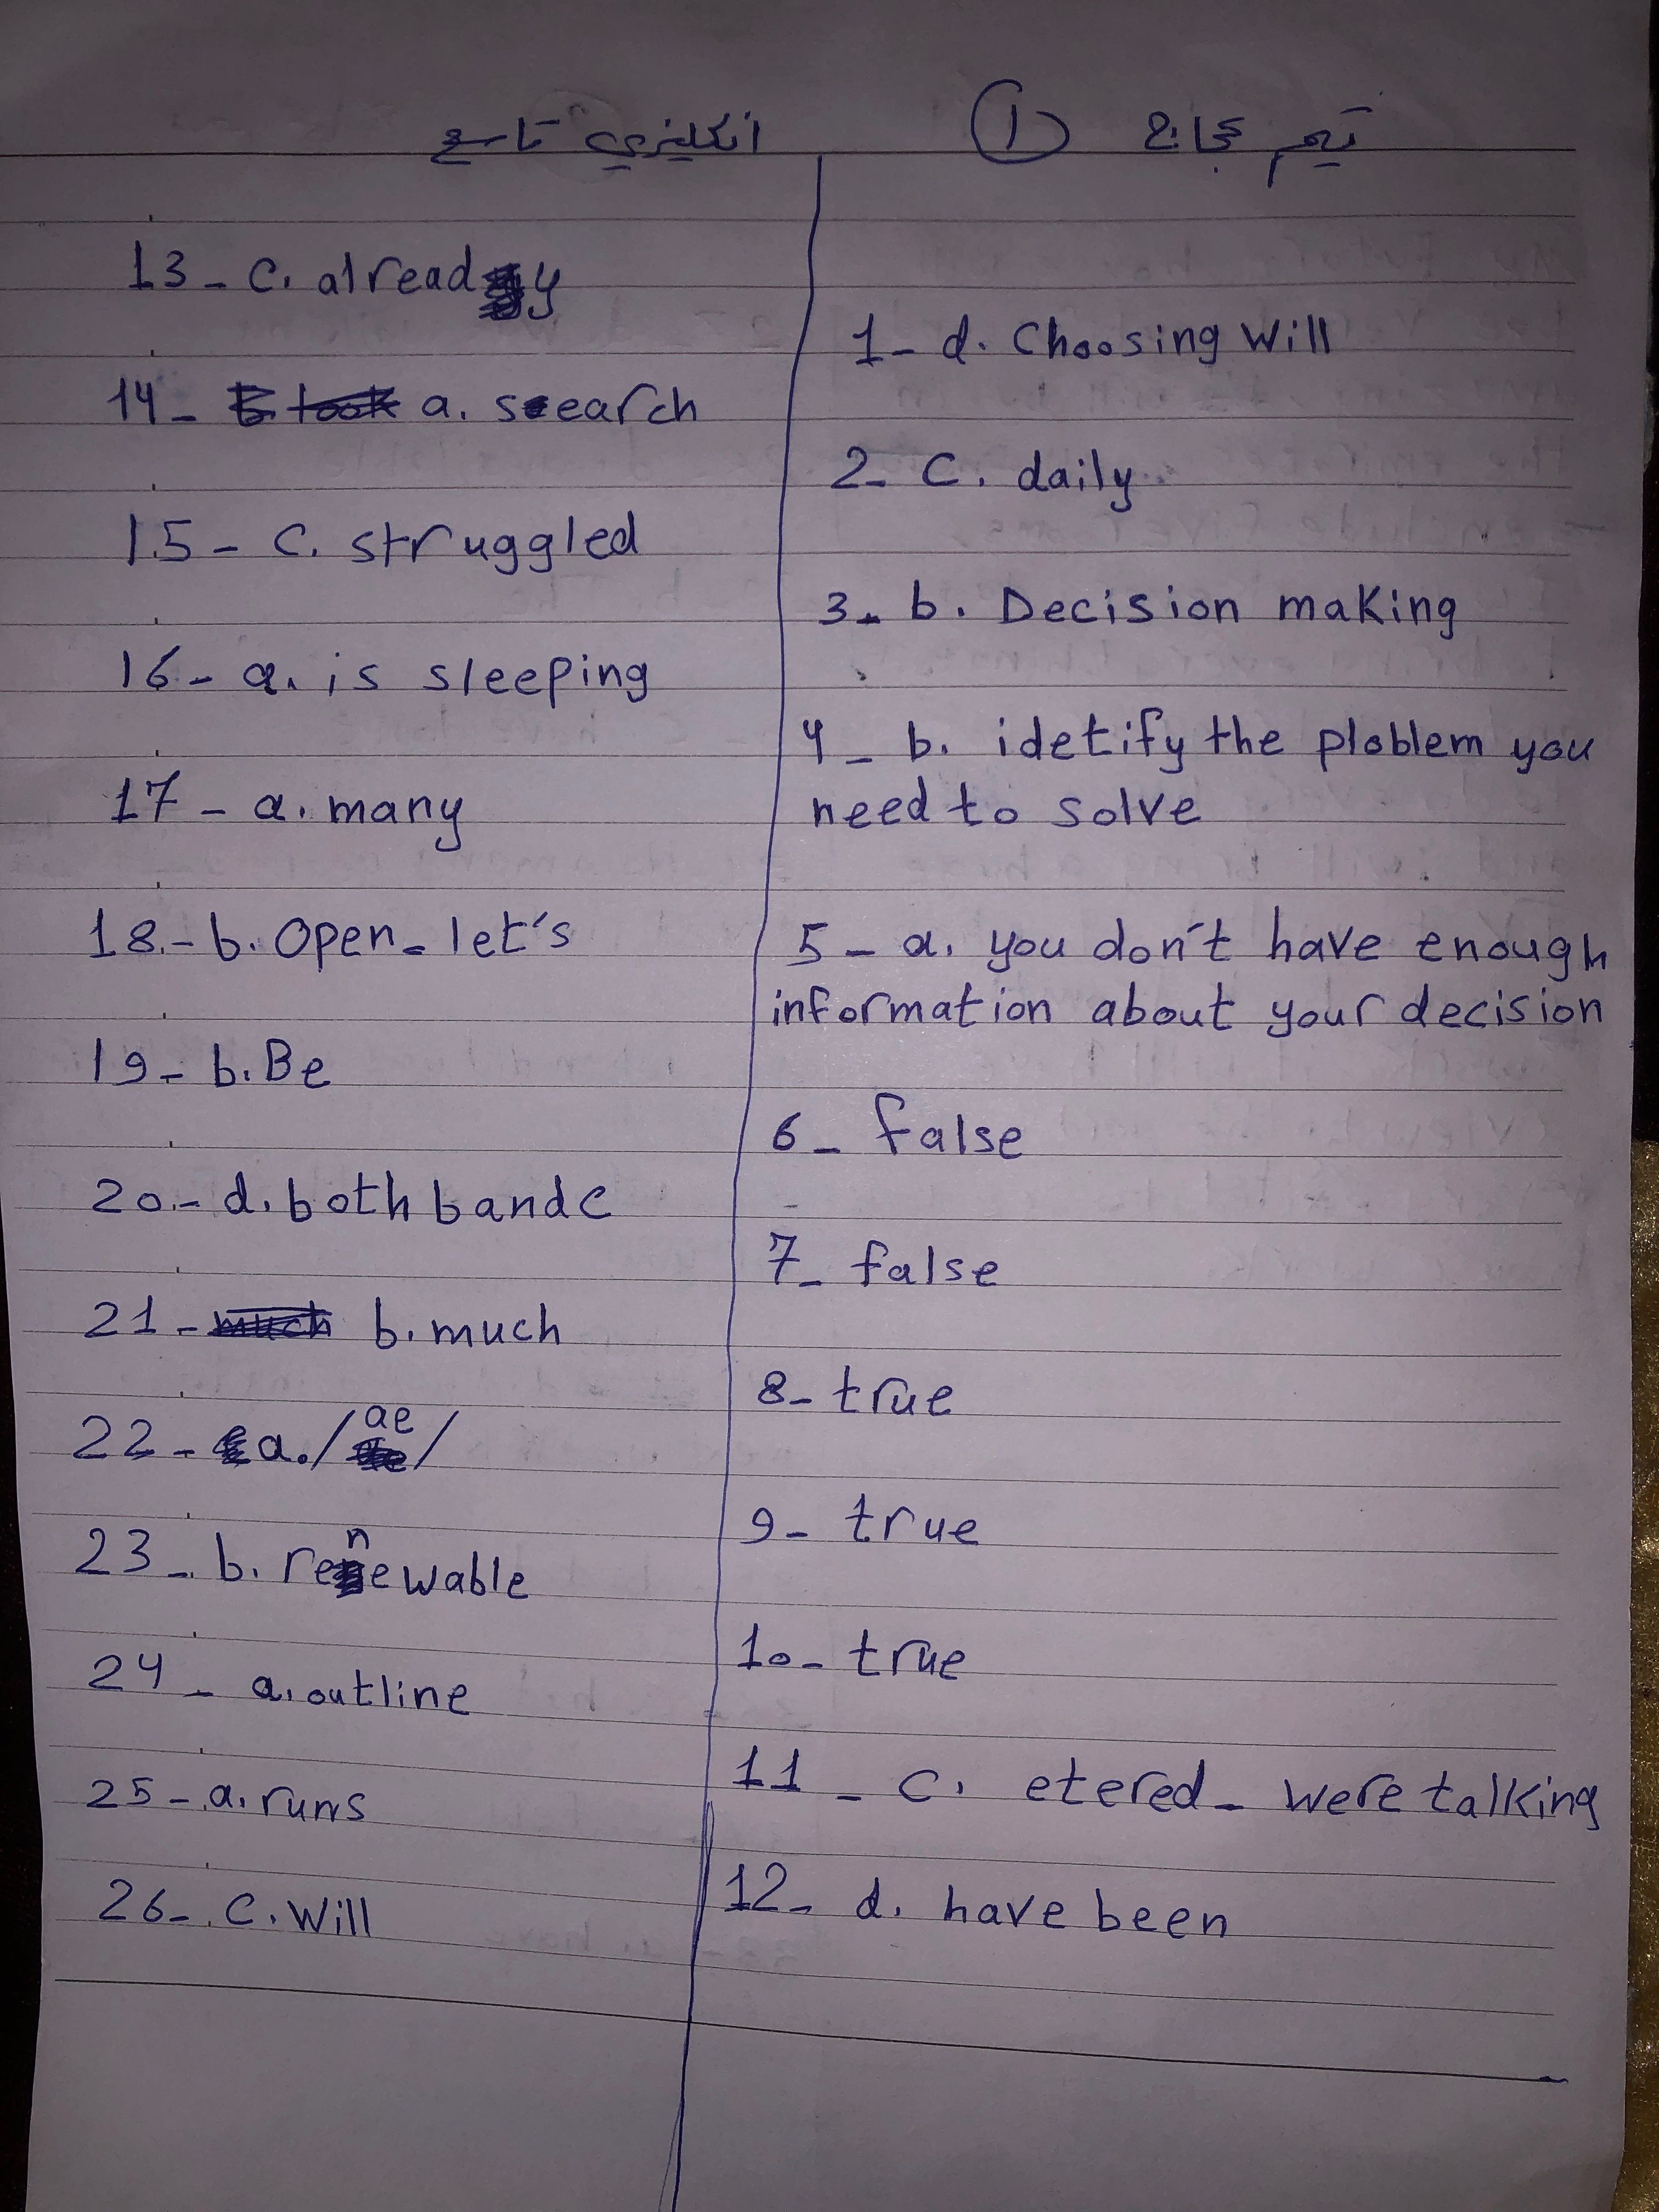 تيم عجاج ① انكليزي تاسع
1- d. Choosing will
2- c. daily
3- b. Decision making
4- b. idetify the ploblem you
need to solve
5- a. you don't have enough
information about your decision
6- false
7- false
8- true
9- true
10- true
11- c. etered - were talking
12- d. have been
13- c. already
14- a. search
15- c. struggled
16- a. is sleeping
17- a. many
18- b. Open - let's
19- b. Be
20- d. both b and c
21- b. much
22- a. /ae/
23- b. renewable
24- a. outline
25- a. runs
26- c. Will